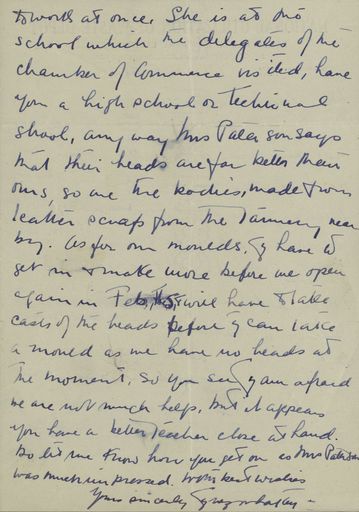 to work at once. She is at the
school which the delegates of the
chamber of Commerce visited, have
you a high school or technical
school, any way Mrs Paterson says
that their heads are far better than
ours, so are the bodies, made from
leather scraps from the Tannery near
by. As for our moulds, I have to
get in & make more before we open
again in Feb, & will have to take
casts of the heads before I can take
a mould as we have no heads at
the moment. So you see I am afraid
we are not much help, but it appears
you have a better teacher close at hand.
Do let me know how you get on as Mrs Paterson
was much impressed. With best wishes
Yours sincerely